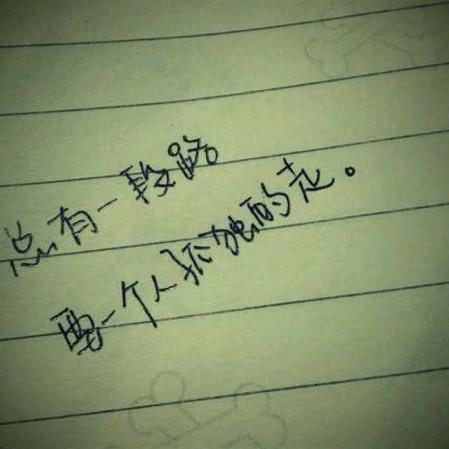 总有一段路
要一个人孤独的走。